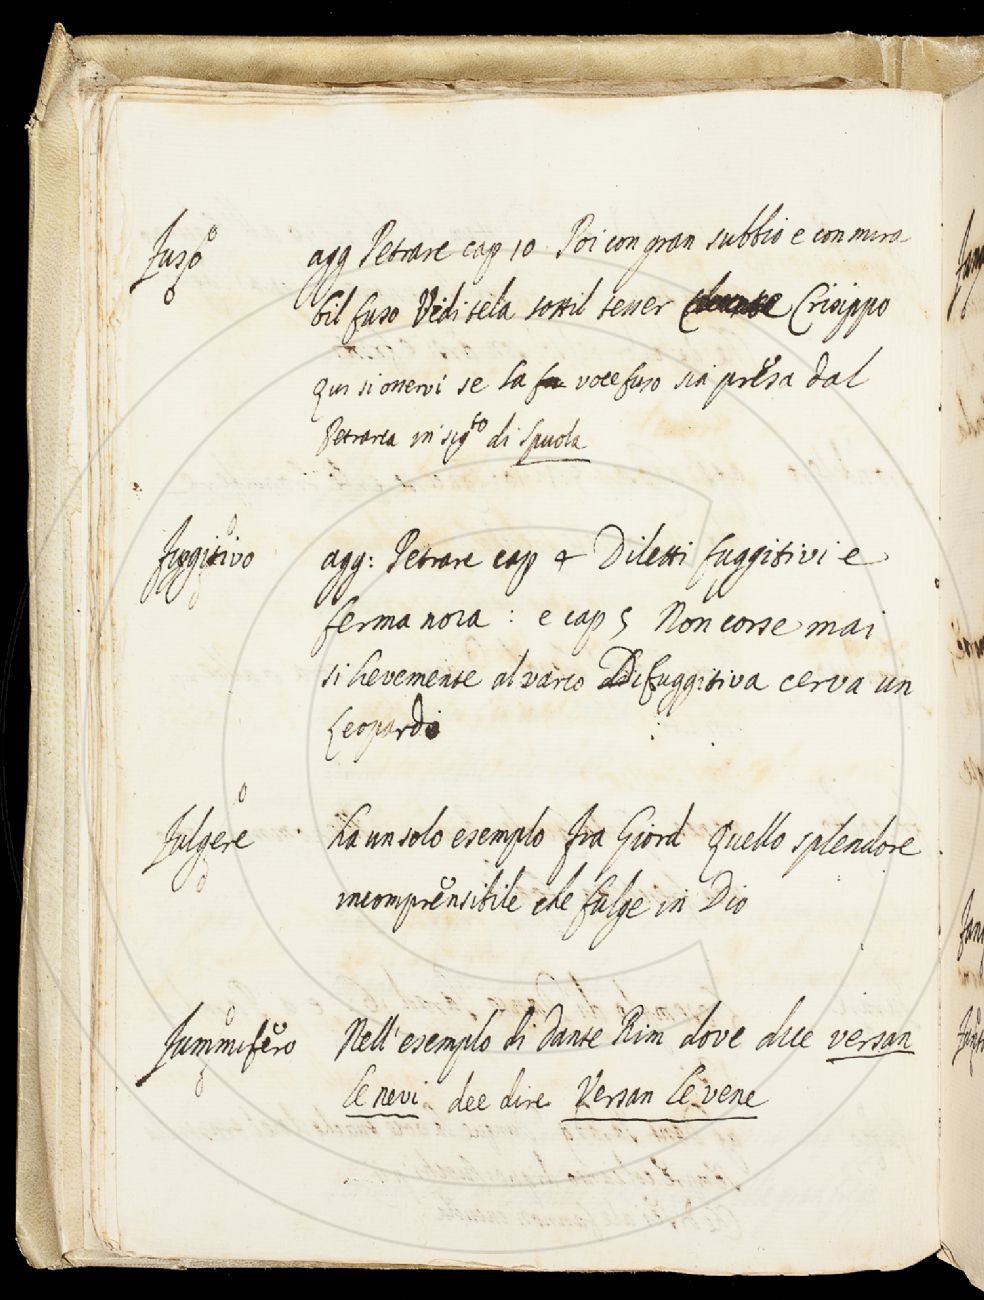 Fuso agg Petrarc cap 10 Poi con gran subbio e con mira
bil fuso Vedi tela sottil tesser Crisippo
qui si osservi se la voce fuso sia presa dal
Petrarca in sigto di Spuola
Fuggitivo agg: Petrarc cap 4 Diletti fuggitivi e
ferma noia : e cap 5 Non corse mai
si lievemente al varco Di fuggitiva cerva un
Leopardo
Fulgere ha un solo esemplo fra Giord Quello splendore
incomprensibile che fulge in Dio
Fummifero Nell'esemplo di Dante Rim dove dice versan
le nevi dee dire Versan le vene